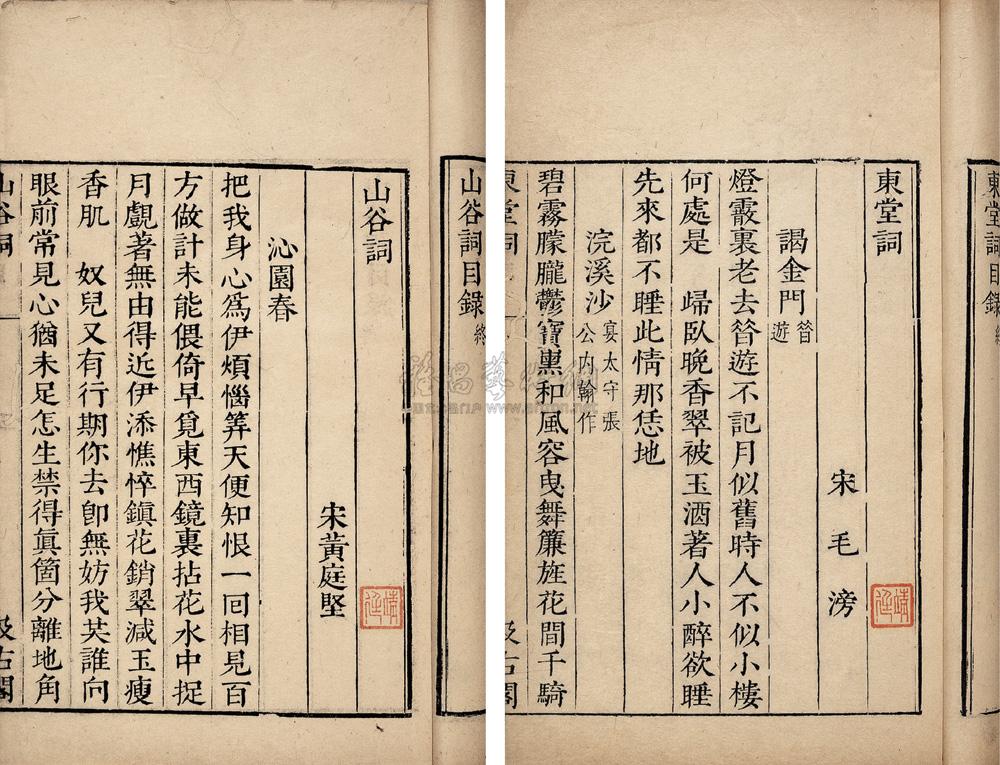 東堂詞目錄
東堂詞
宋毛滂
謁金門 昝遊
燈霰裏老去昝遊不記月似舊時人不似小樓
何處是 歸臥晚香翠被玉酒著人小醉欲睡
先來都不睡此情那恁地
浣溪沙 宴太守張公内翰作
碧霧朦朧鬱寶熏和風容曳舞簾旌花間千騎
東堂詞
汲古閣
山谷詞目錄 終
山谷詞
宋黃庭堅
沁園春
把我身心爲伊煩惱筭天便知恨一回相見百
方做計未能偎倚早覓東西鏡裏拈花水中捉
月覷著無由得近伊添憔悴鎮花銷翠減玉瘦
香肌 奴兒又有行期你去卽無妨我英誰向
眼前常見心猶未足怎生禁得眞箇分離地角
山谷詞
汲古閣